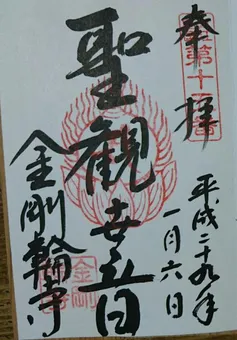 奉拝
平成二十九年
一月六日
聖観世音
金剛輪寺